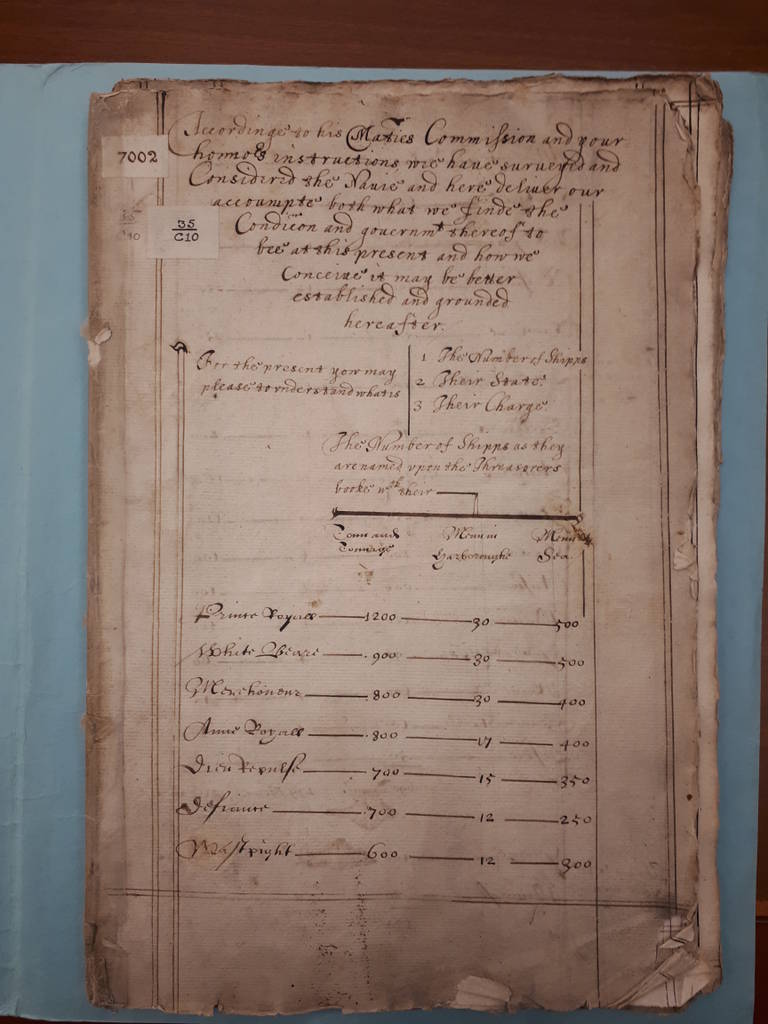 7002
35
C10
Accordinge to his Ma:ties Commission and your
hono:rs instructions wee have surveyed and
Considered the Navie and here deliver our
accoumpte both what we finde the
Condicon and governm:t thereof to
bee at this present and how we
Conceive it may be better
established and grounded
hereafter.
For the present yow may
please to vnderstand what is
1 The Number of Shipps
2 Their State.
3 Their Charge.
The Number of Shipps as they
are named vpon the Threasorers
booke w:th their
Tonn and Tonnage
Menn in Harboroughe
Menn Sea
Prince Royall 1200 30 500
White Beare 900 30 500
Merehoneur 800 30 400
Anne Royall 800 17 400
Dieu Repulse 700 15 350
Defiance 700 12 250
Wastpight 600 12 300